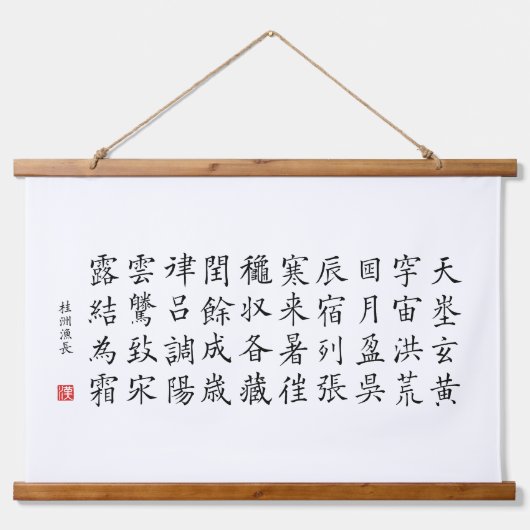 天埊玄黄
穻宙洪荒
囸月盈吳
辰宿列張
寒来暑徃
穐収各藏
閏餘成歳
律呂調陽
雲騰致宋
露結為霜
桂洲漁長
漢